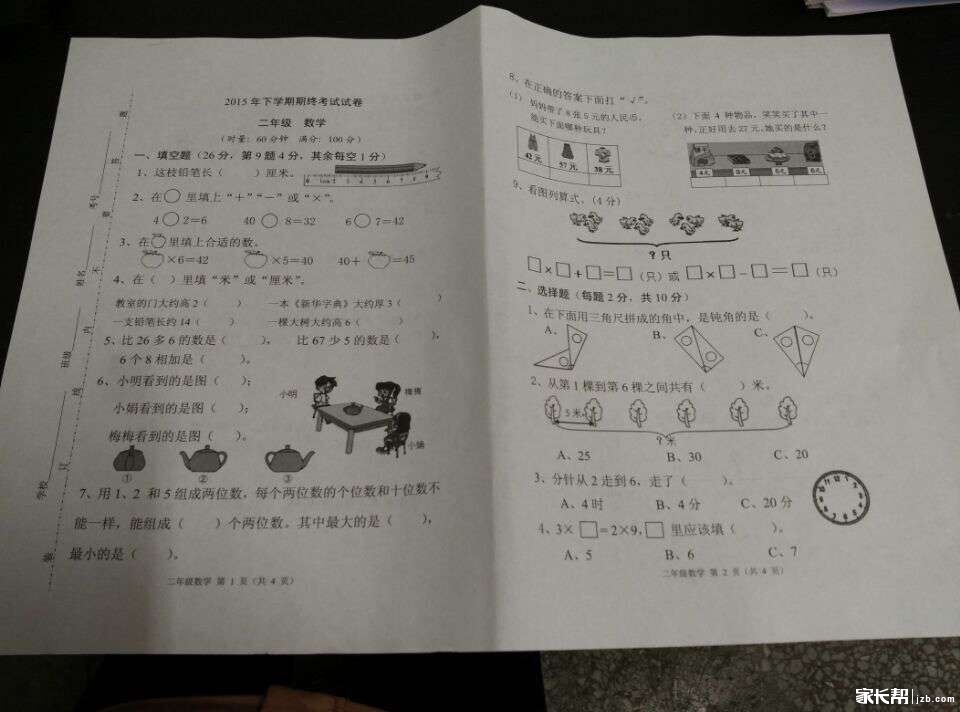 2015年下学期期终考试试卷
二年级 数学
(时量:60分钟 满分:100分)
一、填空题(26分,第9题4分,其余每空1分)
1、这枝铅笔长( )厘米。
2、在○里填上“+”“-”或“×”。
4○2=6 40○8=32 6○7=42
3、在 里填上合适的数。
×6=42 ×5=40 40+ =45
4、在( )里填“米”或“厘米”。
教室的门大约高2( ) 一本《新华字典》大约厚3( )
一支铅笔长约14( ) 一棵大树大约高6( )
5、比26多6的数是( )。 比67少5的数是( ),
6个8相加是( )。
6、小明看到的是图( );
小娟看到的是图( );
梅梅看到的是图( )。
小明
梅梅
小娟
① ② ③
7、用1、2 和5组成两位数,每个两位数的个位数和十位数不
能一样,能组成( )个两位数。其中最大的是( ),
最小的是( )。
二年级数学 第 1 页(共 4 页)
学校
班级
姓名
考号
装 只 线 内 不 要 答 题
8、在正确的答案下面打“√”。
(1) 妈妈带了8张5元的人民币,
能买下面哪种玩具?
42元 57元 38元
(2)下面 4 种物品,笑笑买了其中一
种,正好用去27元,她买的是什么?
9、看图列算式。(4分)
?只
□×□+□=□(只)或□×□-□=□(只)
二、选择题(每题2分,共10分)
1、在下面用三角尺拼成的角中,是钝角的是( )。
A、 B、 C、
2、从第1棵到第6棵之间共有( )米。
5米
?米
A、25 B、30 C、20
3、分针从2走到6,走了( )。
A、4时 B、4分 C、20分
4、3×□=2×9,□里应该填( )。
A、5 B、6 C、7
二年级数学 第 2 页(共 4 页)
家长帮 jzb.com